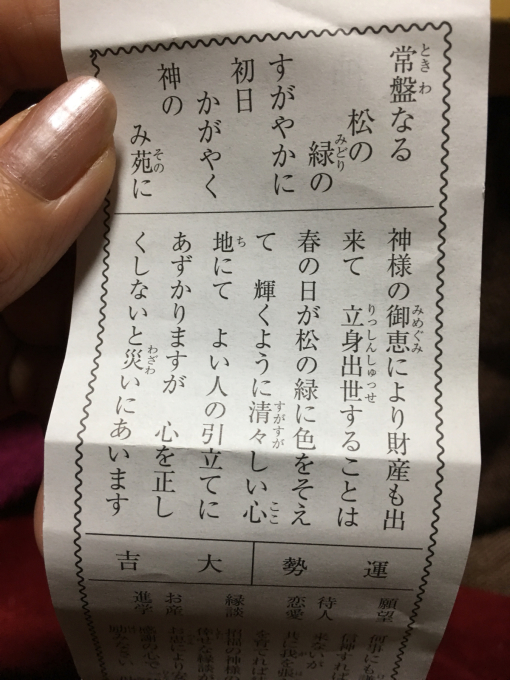 常盤なる
松の
緑の
すがやかに
初日
かがやく
神の
み苑に
神様の御恵により財産も出
来て 立身出世することは
春の日が松の緑に色をそえ
て 輝くように清々しい心
地にて よい人の引立てに
あずかりますが 心を正し
くしないと災いにあいます
運勢 大吉
願望 何事にも
信神すれば
待人 来ないが
恋愛
を育てれば
縁談
お産
進学